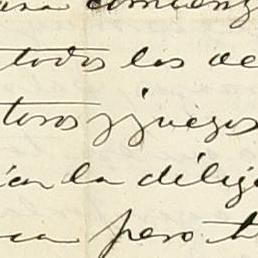 comienz
todos los de
toros y juegos
la dilig
pero t